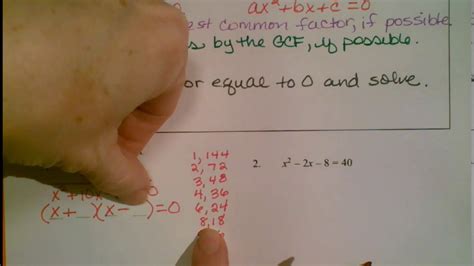 ax²+bx+c=0
est common factor, if possible
by the GCF, if possible.
or equal to 0 and solve.
1, 144
2, 72
3, 48
4, 36
6, 24
8, 18
2. x² − 2x − 8 = 40
(x+_)(x-_)=0